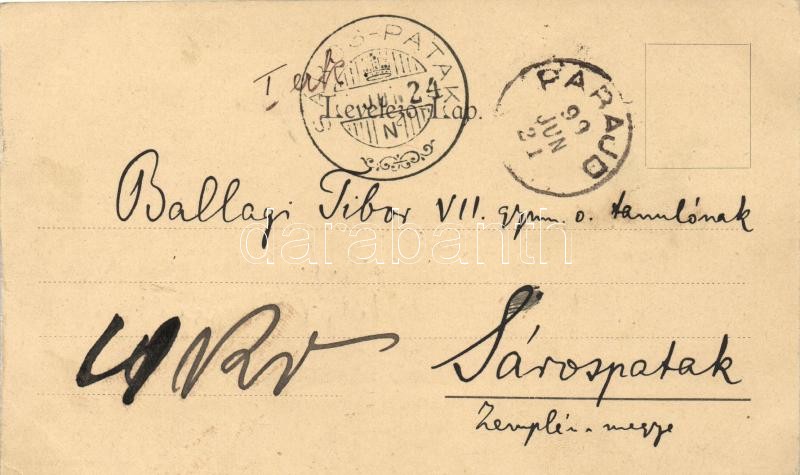 SÁROS-PATAK
JUN 24
N
PARAJD
99
JUN
21
Levelező-Lap.
Ballagi Tibor VII. gymn. o. tanulónak
darabanth
Kr
Sárospatak
Zemplén-megye